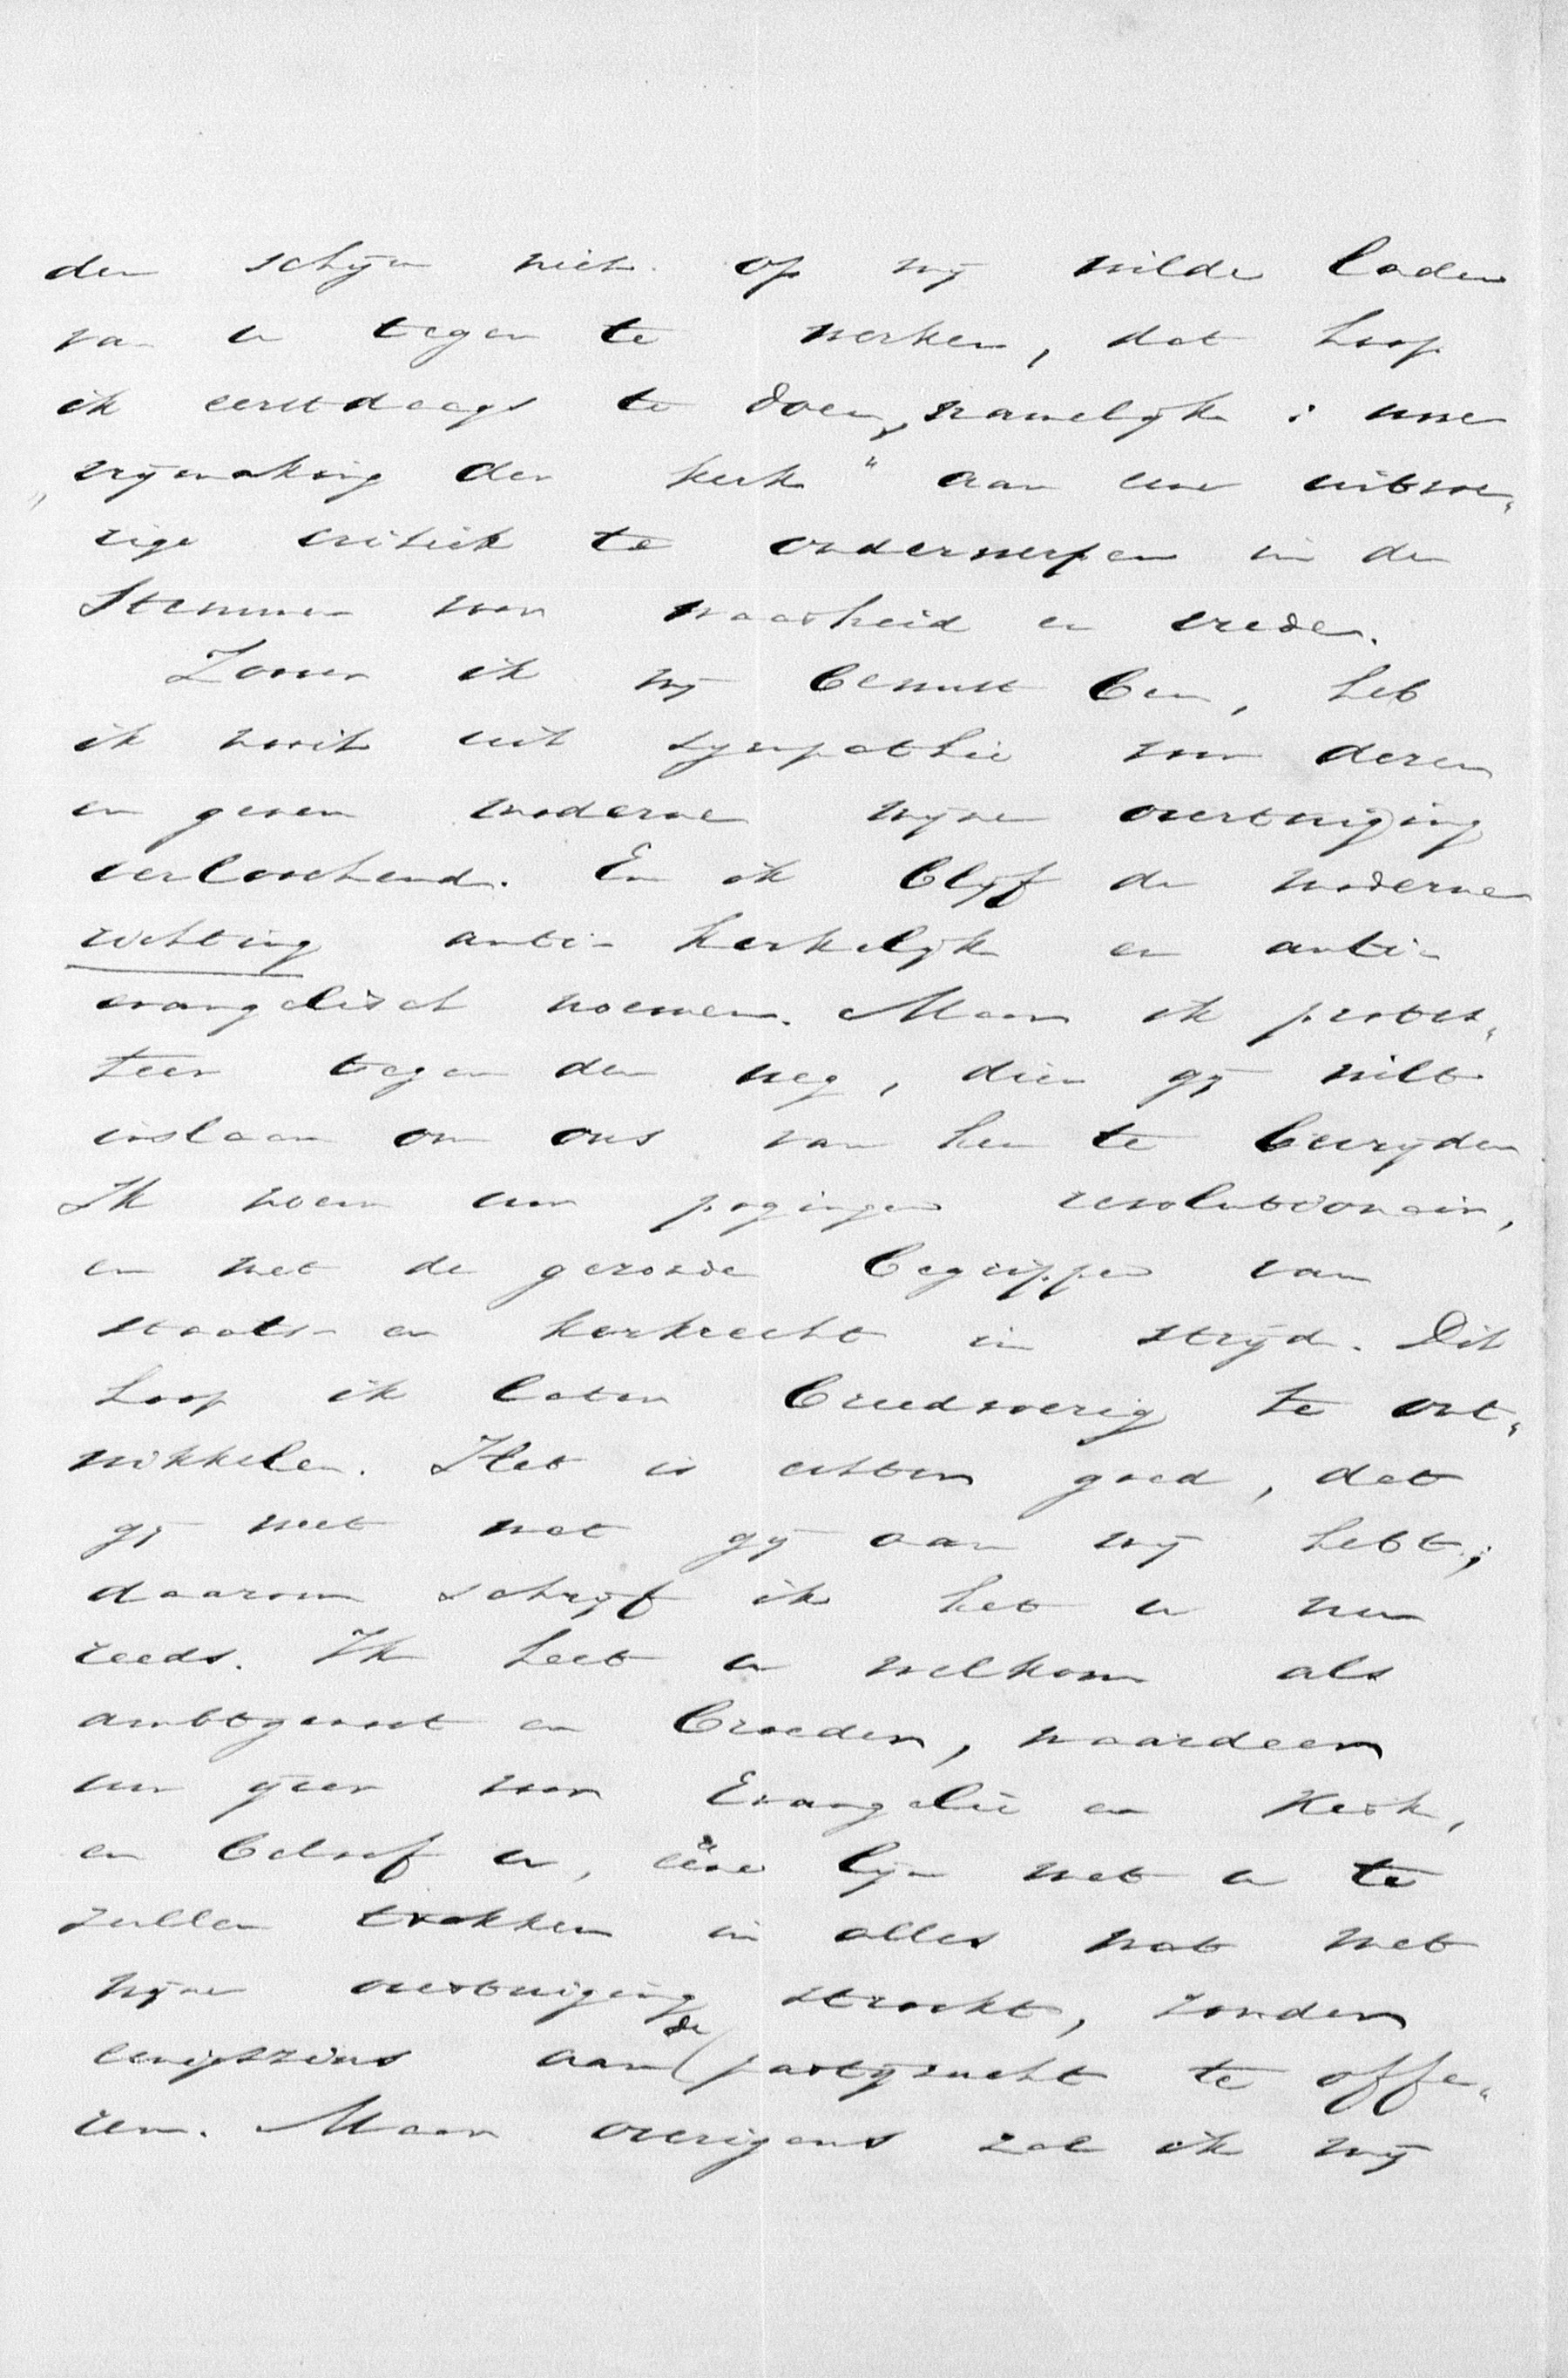 den schijn niet op mij wilde laden
van u tegen te werken, dat hoop
ik eerstdaags te doen, namelijk: uwe
„vrijmaking der kerk" aan eene uitvoe„
rige critiek te onderwerpen in de
Stemmen voor waarheid en vrede.
Zoover ik mij bewust ben, heb
ik nooit uit sympathie voor dezen
en genen moderne mijne overtuiging
verloochend. En ik blijf de moderne
richting anti-kerkelijk en anti-
evangelisch noemen. Maar ik protes„
teer tegen den weg, dien gij wilt
inslaan om ons van hen te bevrijden
Ik noem uw pogingen revolutionair,
en met de gezonde begrippen van
staats- en kerkrecht in strijd. Dit
hoop ik later breedvoerig te ont„
wikkelen. Het is echter goed, dat
gij weet wat gij aan mij hebt;
daarom schrijf ik het u nu
reeds. Ik heet u welkom als
ambtgenoot en broeder, waardeer
uw ijver voor Evangelie en Kerk,
en beloof u, ééne lijn met u te
zullen trekken in alles wat met
mijne overtuiging strookt, zonder
eenigszins aan de partijzucht te offe„
ren. Maar overigens zal ik mij